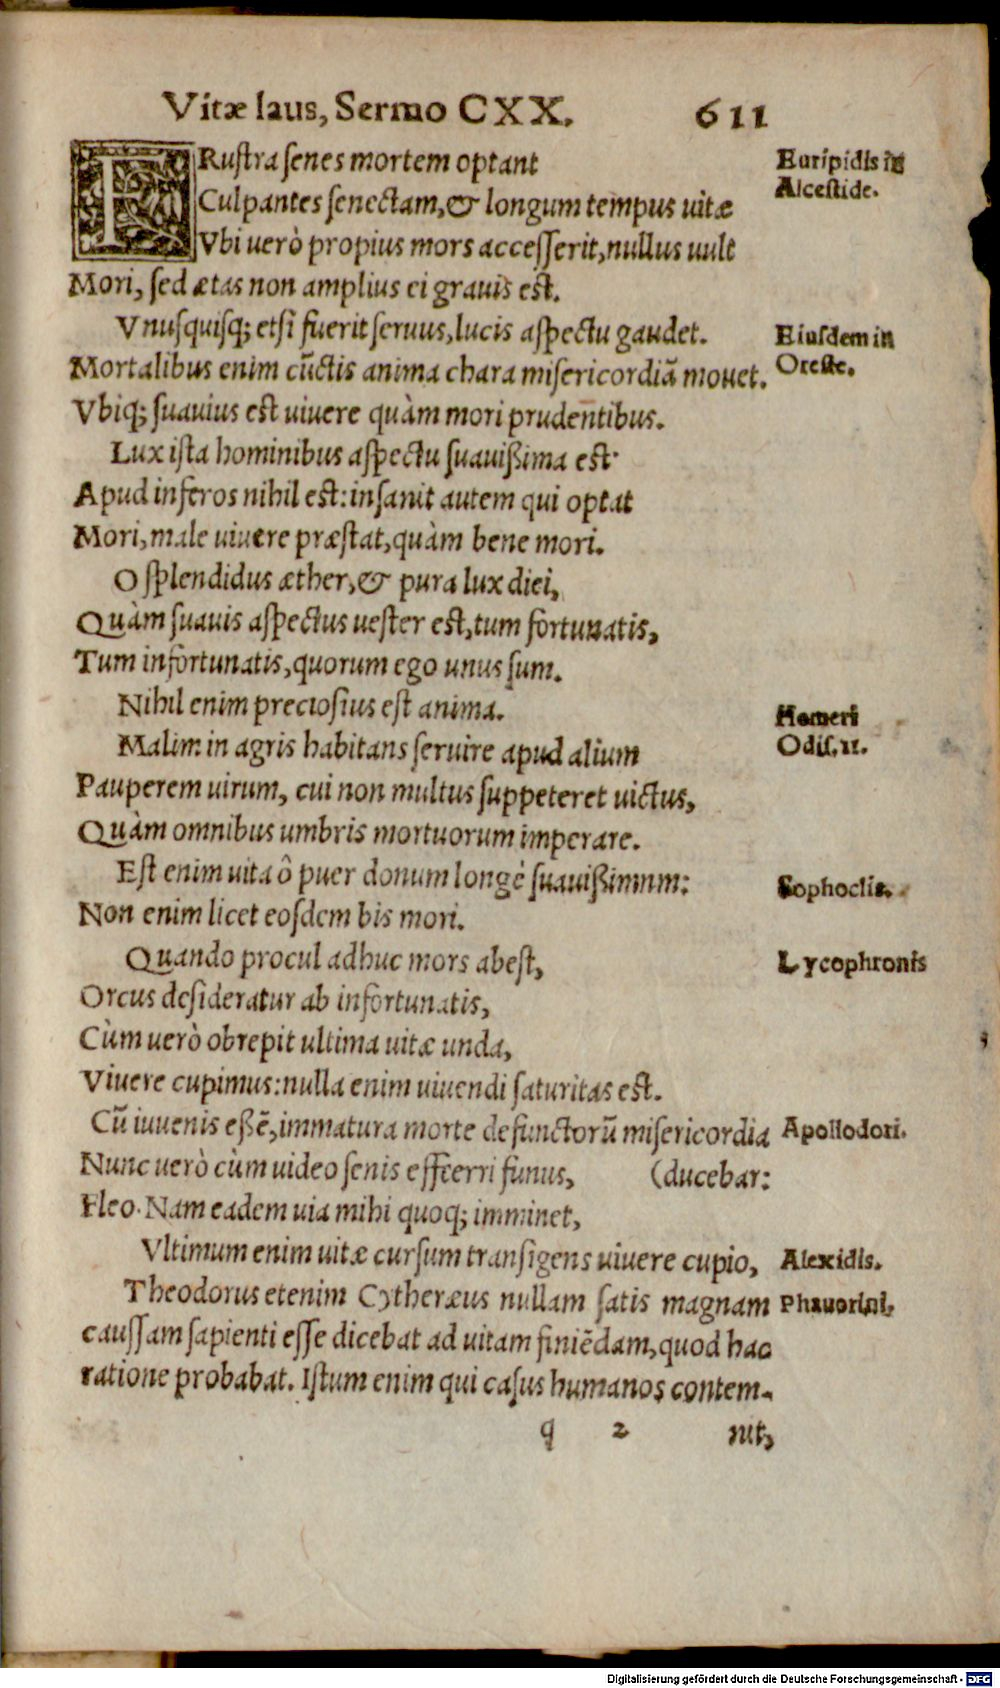 Vitæ laus, Sermo CXX. 611
FRustra senes mortem optant
Euripidis in
Culpantes senectam, & longum tempus uitæ
Alcestide.
Vbi uerò propius mors accesserit, nullus uult
Mori, sed ætas non amplius ei grauis est.
Vnusquisq; etsi fuerit seruus, lucis aspectu gaudet.
Eiusdem in
Mortalibus enim cūctis anima chara misericordiā mouet.
Oreste.
Vbiq; suauius est uiuere quàm mori prudentibus.
Lux ista hominibus aspectu suauißima est·
Apud inferos nihil est: insanit autem qui optat
Mori, male uiuere præstat, quàm bene mori.
O splendidus æther, & pura lux diei,
Quàm suauis aspectus uester est, tum fortunatis,
Tum infortunatis, quorum ego unus sum.
Nihil enim preciosius est anima.
Homeri
Malim in agris habitans seruire apud alium
Odis. 11.
Pauperem uirum, cui non multus suppeteret uictus,
Quàm omnibus umbris mortuorum imperare.
Est enim uita ô puer donum longè suauißimnm:
Sophoclis.
Non enim licet eosdem bis mori.
Quando procul adhuc mors abest,
Lycophronis
Orcus desideratur ab infortunatis,
Cùm uerò obrepit ultima uitæ unda,
Viuere cupimus: nulla enim uiuendi saturitas est.
Cū iuuenis eßē, immatura morte defunctorū misericordia
Apollodori.
Nunc uerò cùm uideo senis efferri funus, (ducebar:
Fleo. Nam eadem uia mihi quoq; imminet,
Vltimum enim uitæ cursum transigens uiuere cupio,
Alexidis.
Theodorus etenim Cytheræus nullam satis magnam
Phauorini.
caussam sapienti esse dicebat ad uitam finiēdam, quod hac
ratione probabat. Istum enim qui casus humanos contem-
q 2 nit,
Digitalisierung gefördert durch die Deutsche Forschungsgemeinschaft - DFG